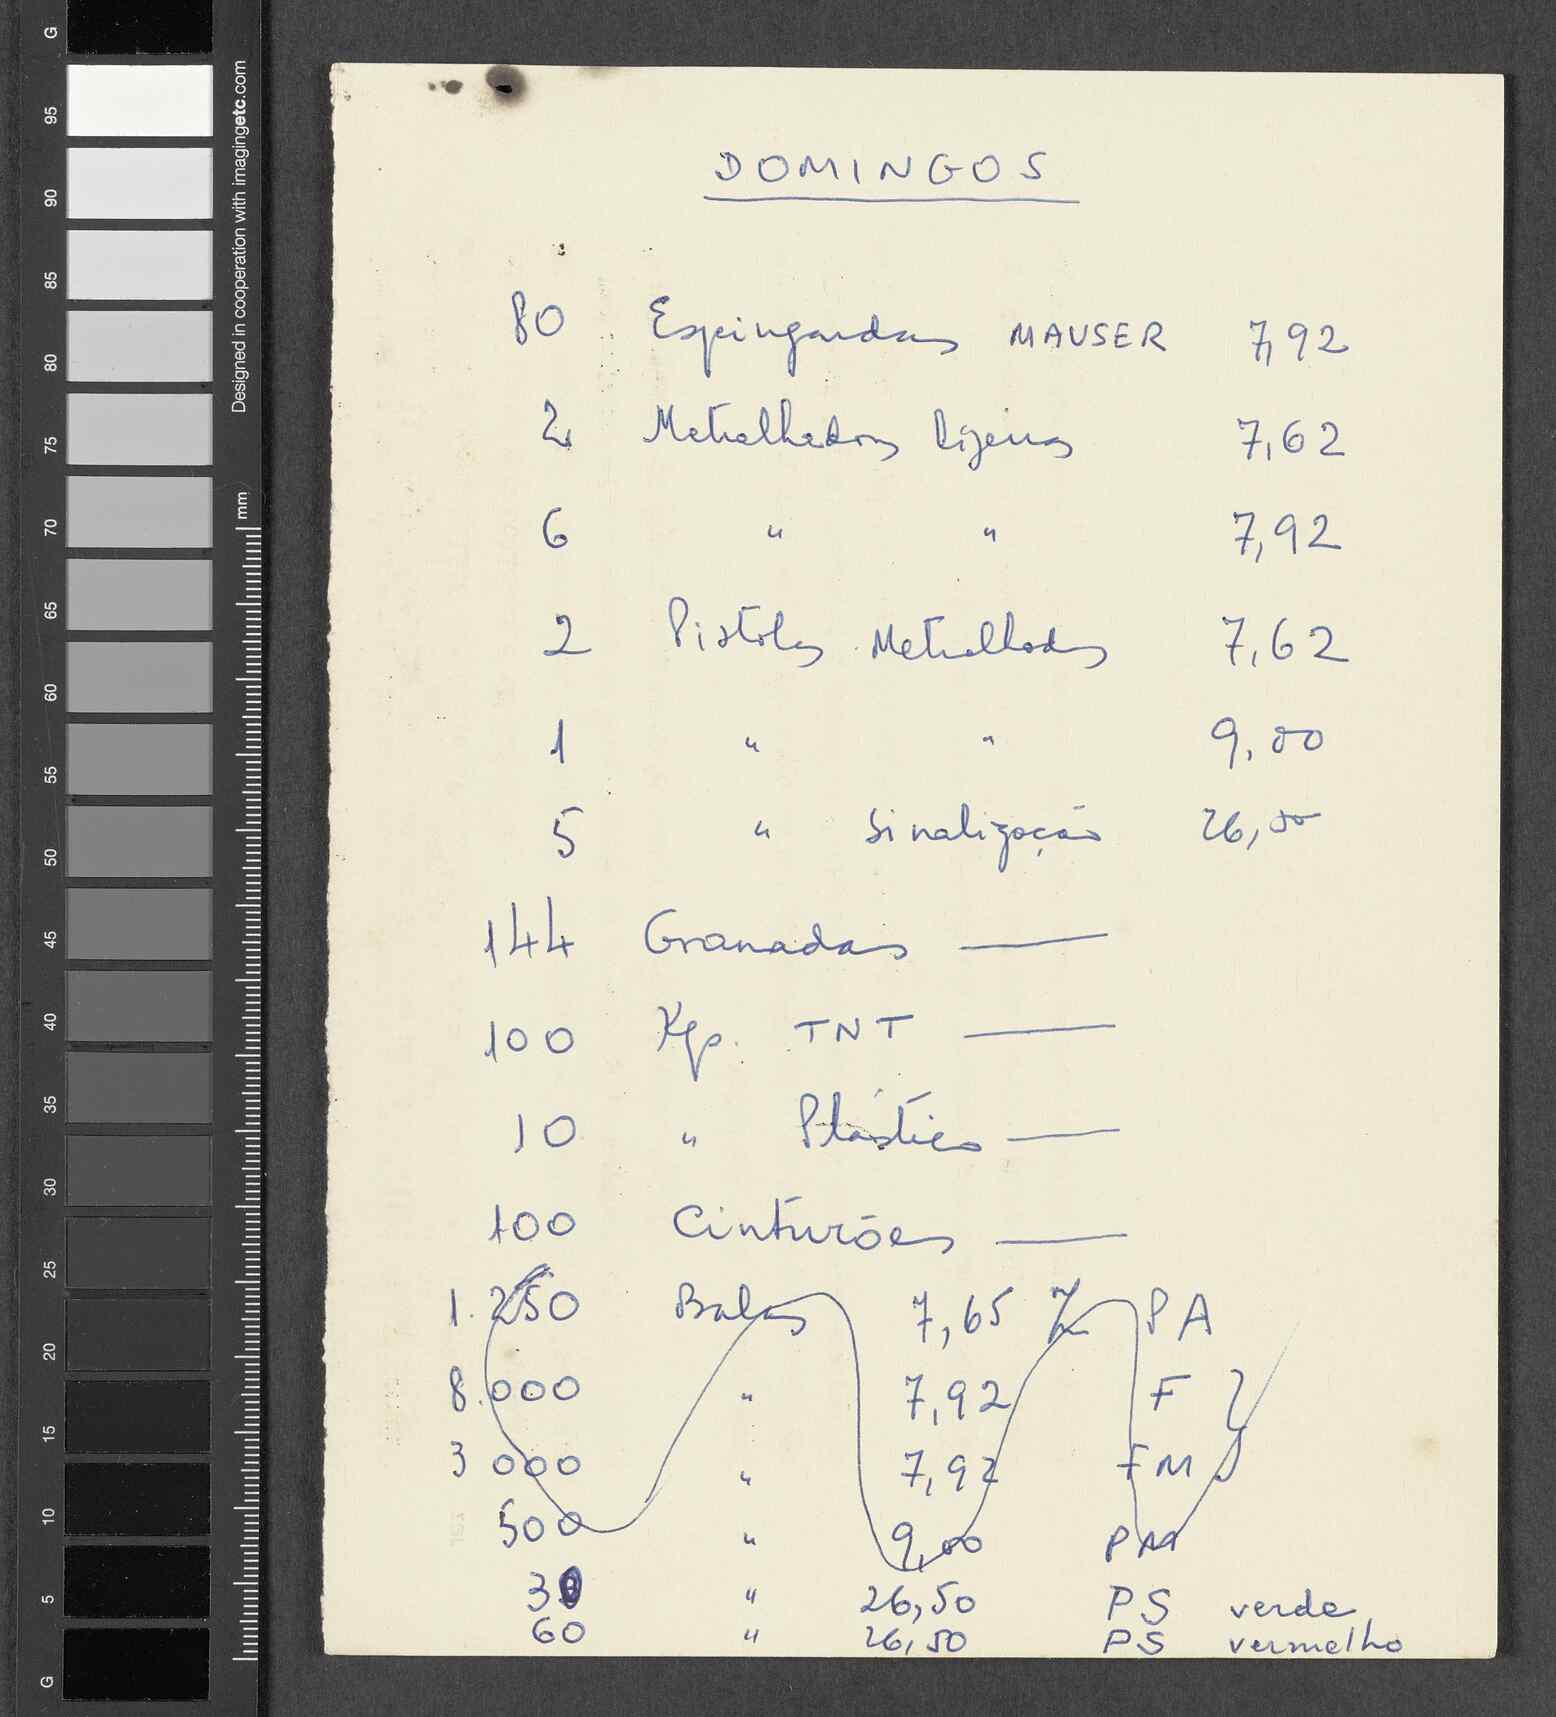 DOMINGOS
80 Espingardas MAUSER 7,92
2 Metralhadoras ligeiras 7,62
6 " " 7,92
2 Pistolas Metralhadoras 7,62
1 " " 9,00
5 " Sinalização 26,50
144 Granadas —
100 Kgs. TNT —
10 " Plástico —
100 Cinturões —
1.250 Balas 7,65 PA
8.000 " 7,92 F
3 000 " 7,92 FM
500 " 9,00 PM
30 " 26,50 PS verde
60 " 26,50 PS vermelho
Designed in cooperation with imagingetc.com
mm
G
95
90
85
80
75
70
65
60
55
50
45
40
35
30
25
20
15
10
5
G